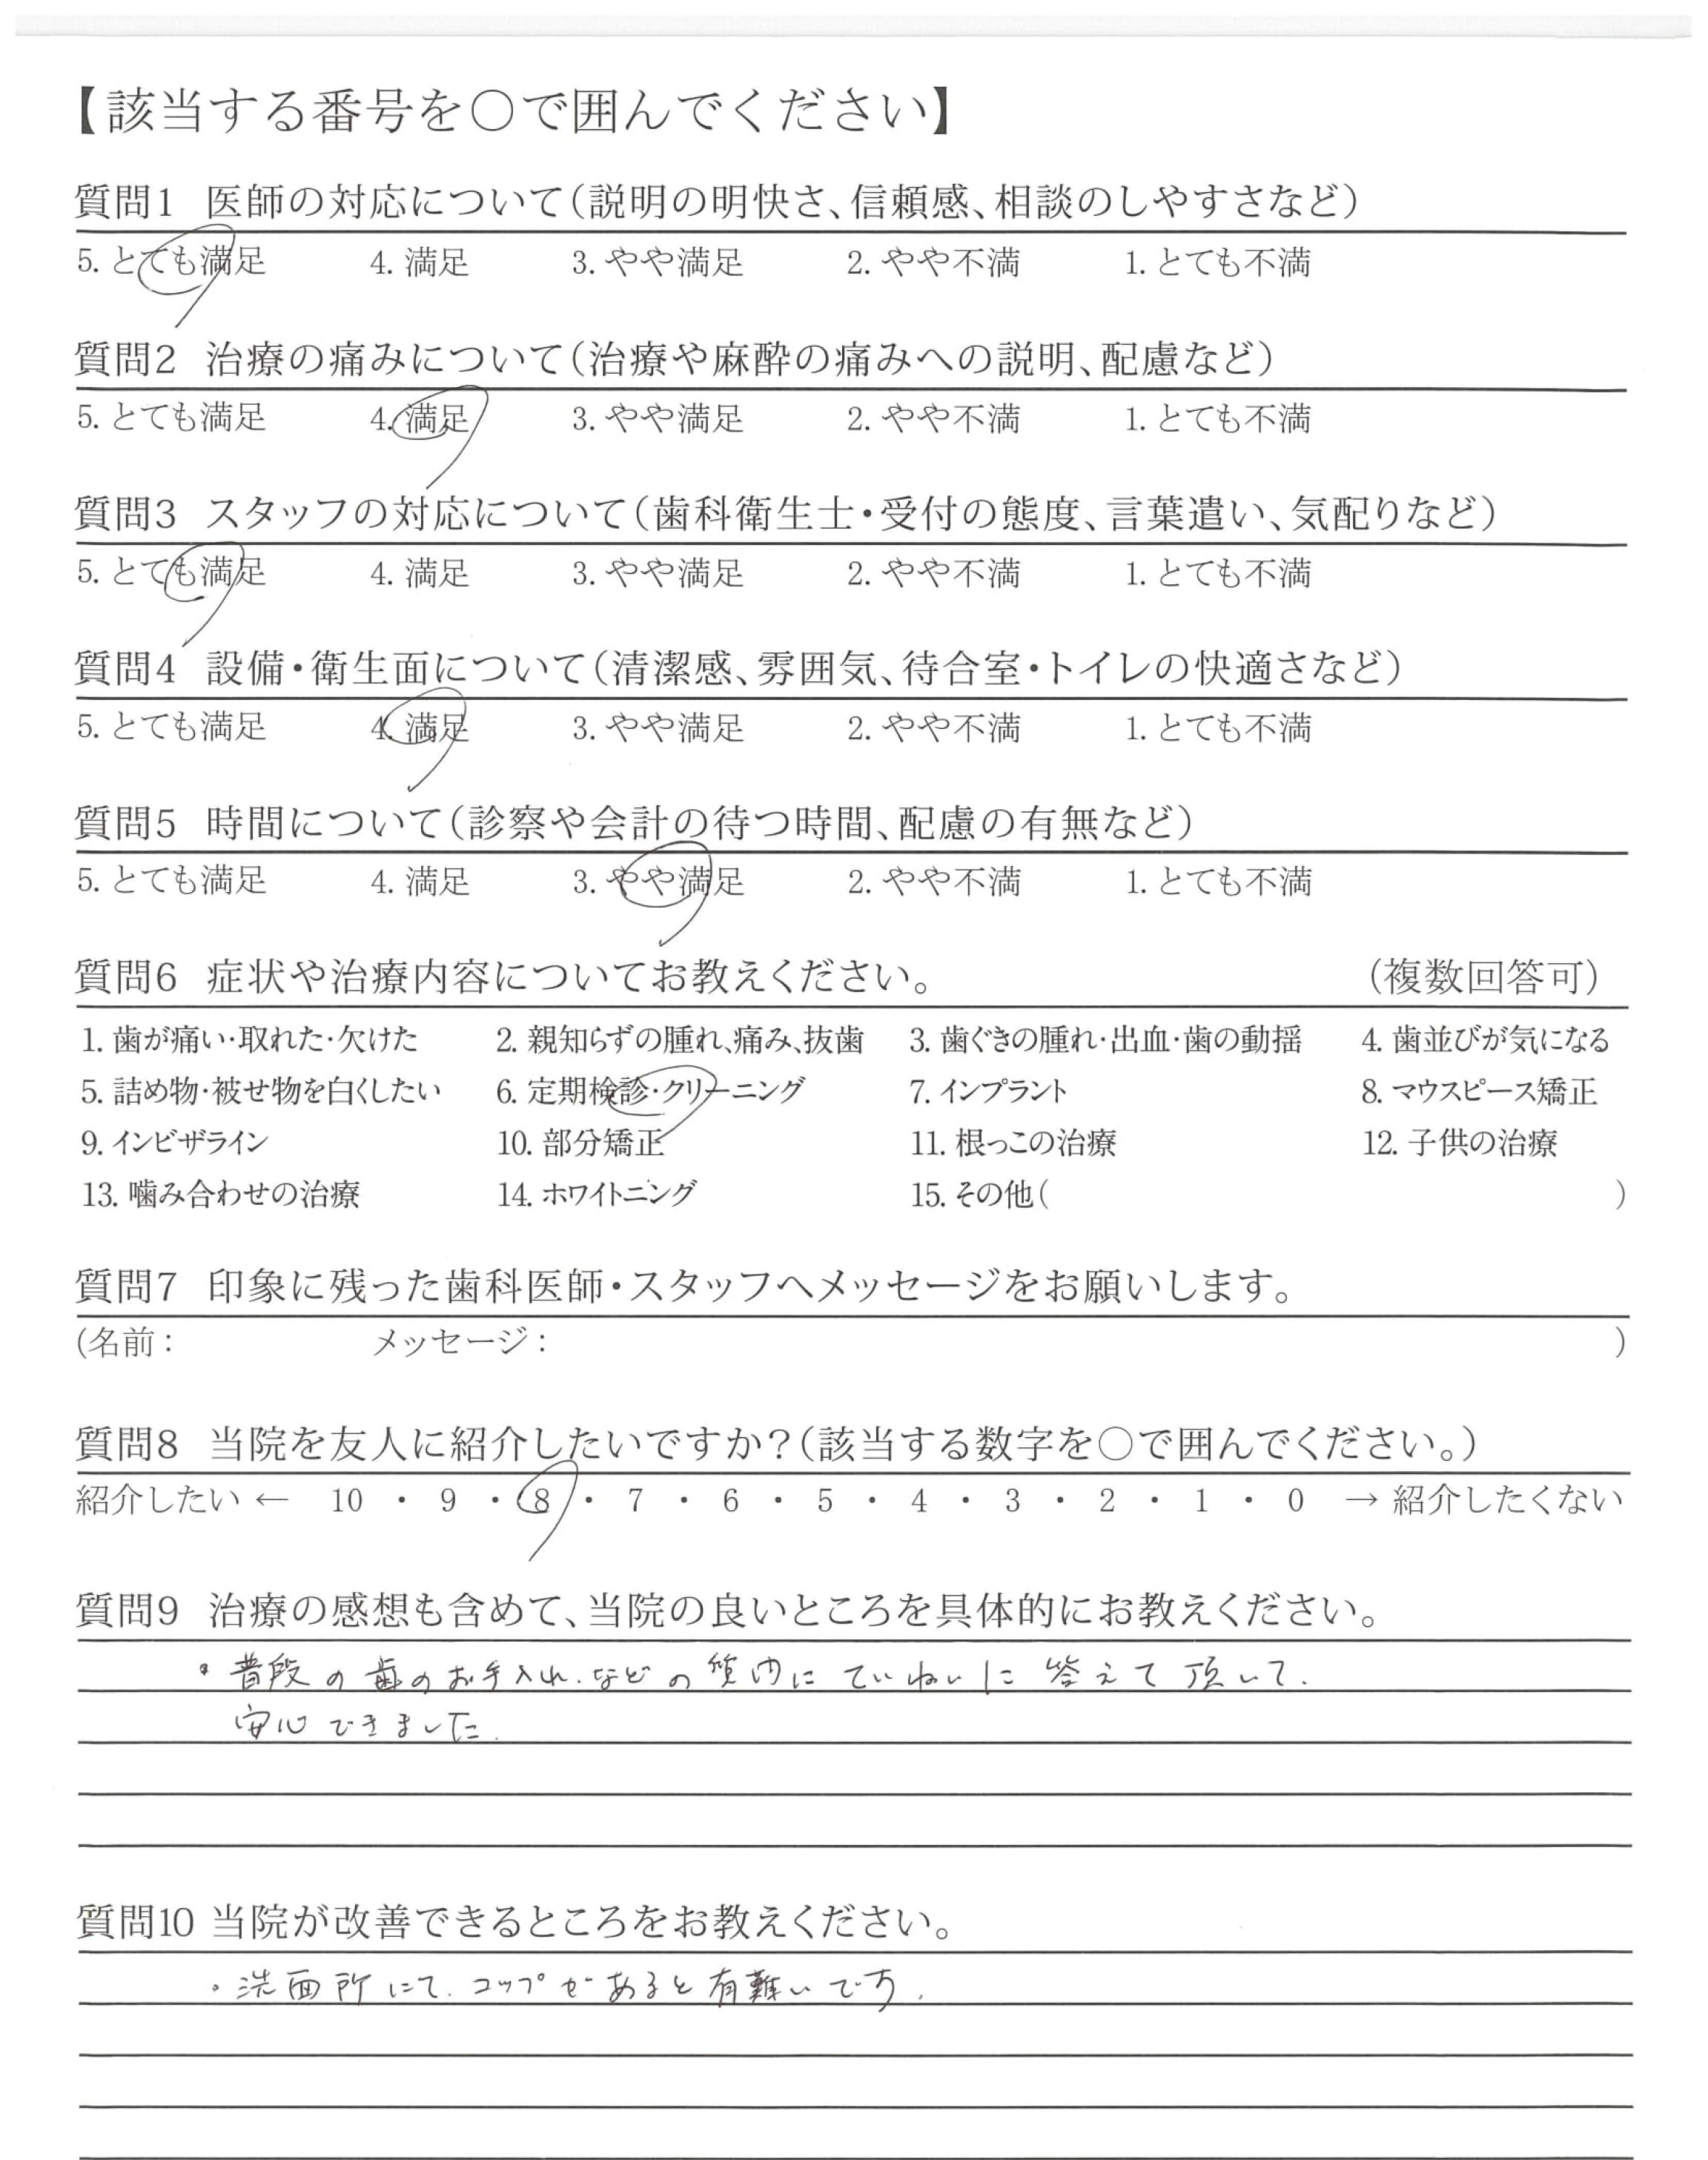 【該当する番号を○で囲んでください】
質問1 医師の対応について(説明の明快さ、信頼感、相談のしやすさなど)
5. とても満足 4. 満足 3. やや満足 2. やや不満 1. とても不満
質問2 治療の痛みについて(治療や麻酔の痛みへの説明、配慮など)
5. とても満足 4. 満足 3. やや満足 2. やや不満 1. とても不満
質問3 スタッフの対応について(歯科衛生士・受付の態度、言葉遣い、気配りなど)
5. とても満足 4. 満足 3. やや満足 2. やや不満 1. とても不満
質問4 設備・衛生面について(清潔感、雰囲気、待合室・トイレの快適さなど)
5. とても満足 4. 満足 3. やや満足 2. やや不満 1. とても不満
質問5 時間について(診察や会計の待つ時間、配慮の有無など)
5. とても満足 4. 満足 3. やや満足 2. やや不満 1. とても不満
質問6 症状や治療内容についてお教えください。 (複数回答可)
1. 歯が痛い・取れた・欠けた 2. 親知らずの腫れ、痛み、抜歯 3. 歯ぐきの腫れ・出血・歯の動揺 4. 歯並びが気になる
5. 詰め物・被せ物を白くしたい 6. 定期検診・クリーニング 7. インプラント 8. マウスピース矯正
9. インビザライン 10. 部分矯正 11. 根っこの治療 12. 子供の治療
13. 噛み合わせの治療 14. ホワイトニング 15. その他( )
質問7 印象に残った歯科医師・スタッフへメッセージをお願いします。
(名前: メッセージ: )
質問8 当院を友人に紹介したいですか?(該当する数字を○で囲んでください。)
紹介したい ← 10 ・ 9 ・ 8 ・ 7 ・ 6 ・ 5 ・ 4 ・ 3 ・ 2 ・ 1 ・ 0 → 紹介したくない
質問9 治療の感想も含めて、当院の良いところを具体的にお教えください。
・普段の歯のお手入れ、などの質問にていねいに答えて頂いて、
安心できました。
質問10 当院が改善できるところをお教えください。
・洗面所にて、コップがあると有難いです。